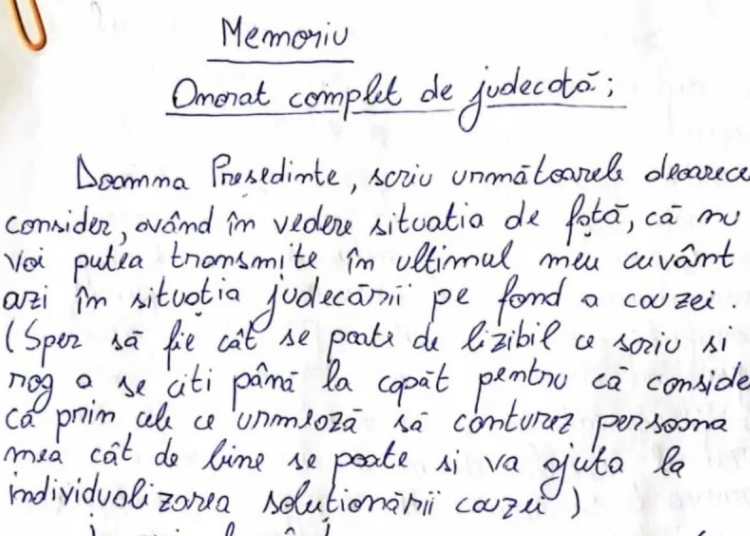 Memoriu
Onorat complet de judecată;
Doamna Presedinte, scriu următoarele deoarece
consider, având în vedere situatia de față, că nu
voi putea transmite în ultimul meu cuvânt
azi în situația judecării pe fond a cauzei
(Sper să fie cât se poate de lizibil ce scriu si
rog a se citi până la capăt pentru că conside
că prin cele ce urmează să conturez persoana
mea cât de bine se poate si va ajuta la
individualizarea soluționării cauzei)